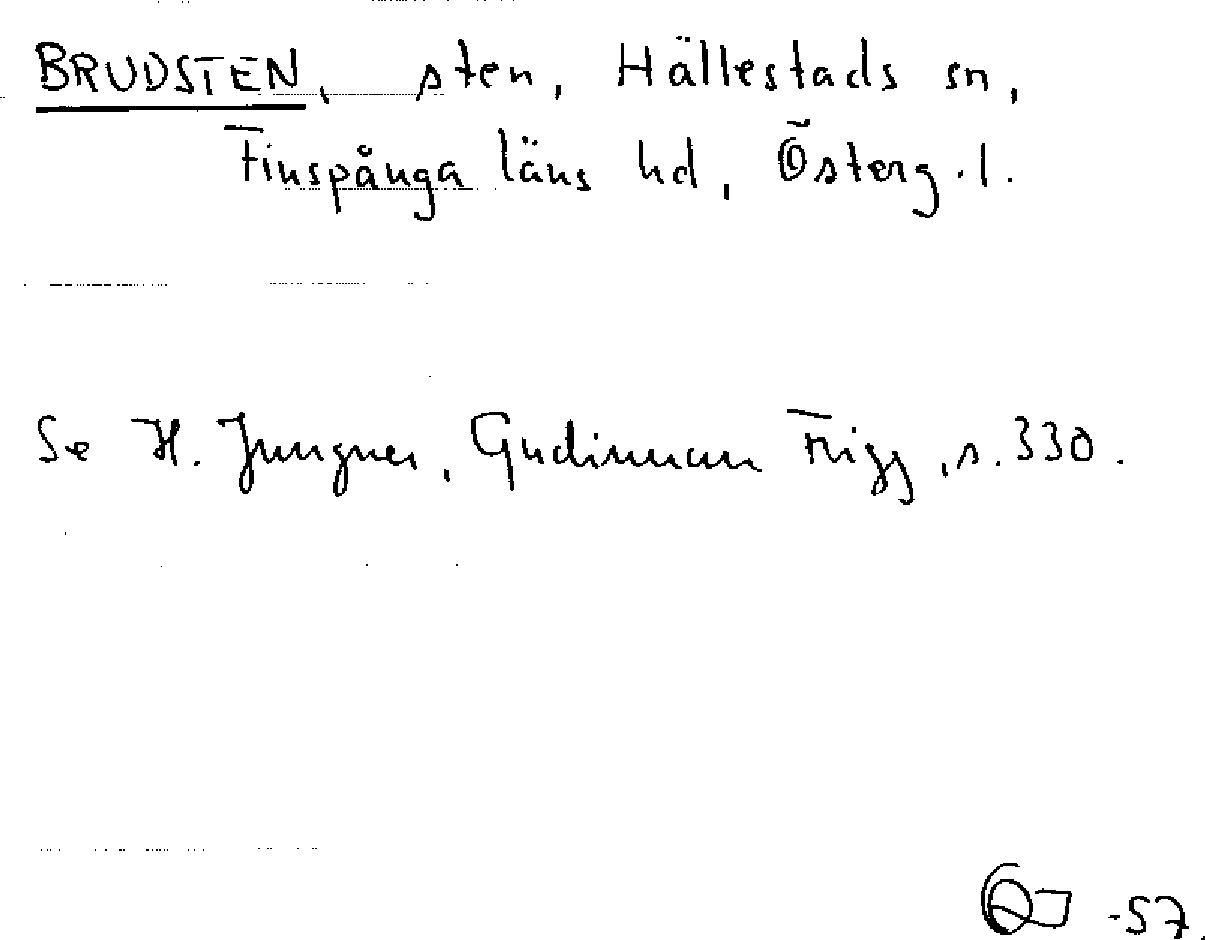 BRUDSTEN, sten, Hällestads sn,
Finspånga läns hd, Österg.l.
Se H. Jungner, Gudinnan Frigg, s. 330.
-57.